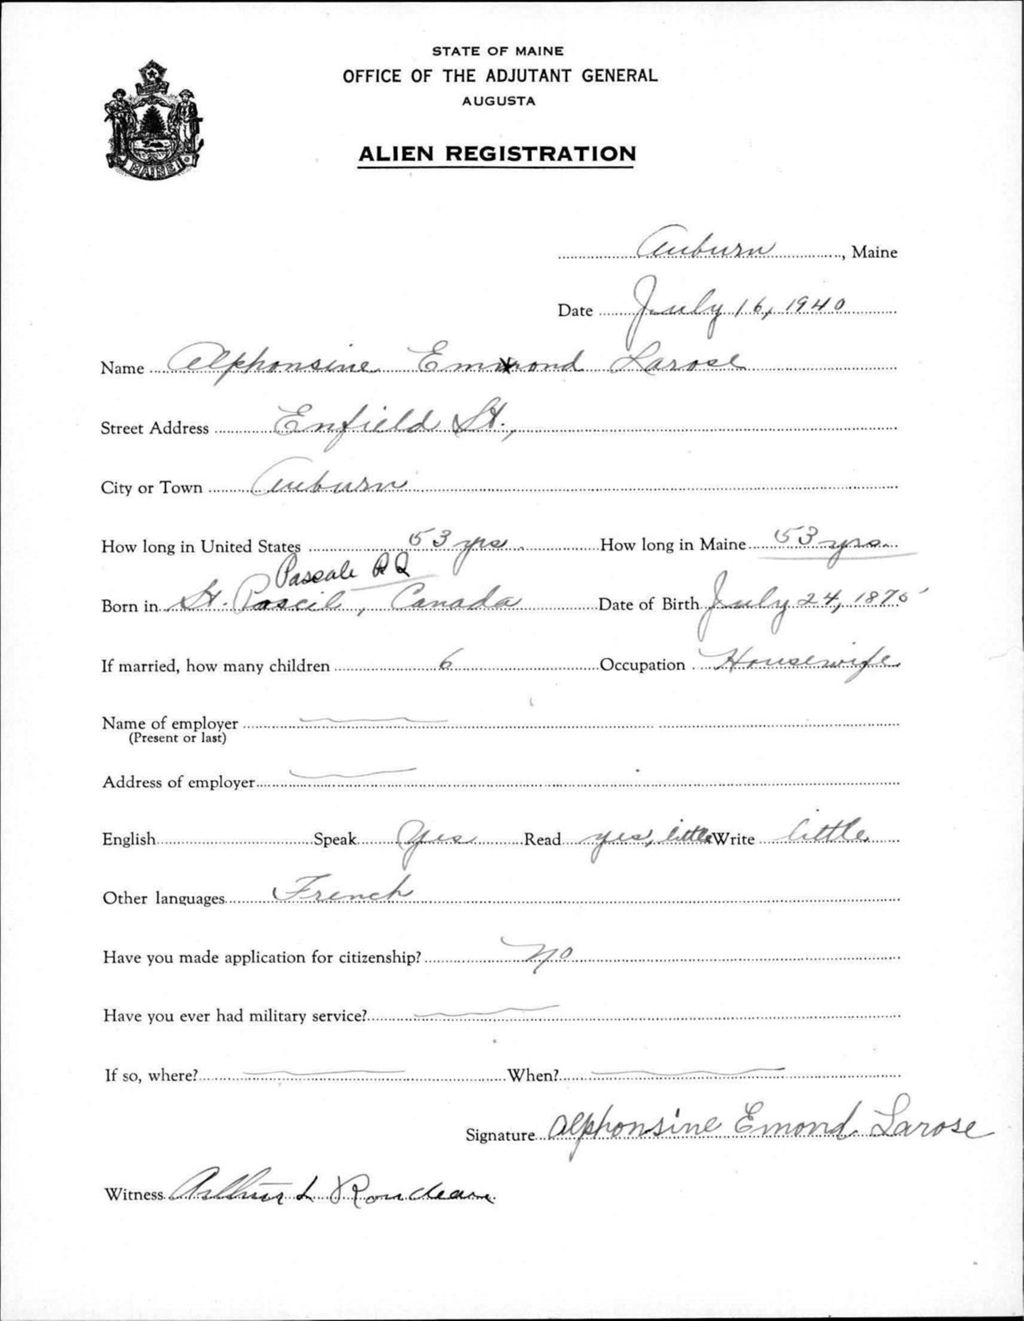 STATE OF MAINE
OFFICE OF THE ADJUTANT GENERAL
AUGUSTA
ALIEN REGISTRATION
MAINE
Auburn, Maine
Date July 16, 1940
Name Alphonsine Emmond Larose
Street Address Enfield St.,
City or Town Auburn
How long in United States 53 yrs. How long in Maine 53 yrs.
Pascale P Q
Born in St. Pascil, Canada Date of Birth July 24, 1875
If married, how many children 6 Occupation Housewife
Name of employer
(Present or last)
Address of employer
English Speak Yes Read yes, little Write little
Other languages French
Have you made application for citizenship? No
Have you ever had military service?
If so, where? When?
Signature Alphonsine Emond Larose
Witness Arthur L Rondeau